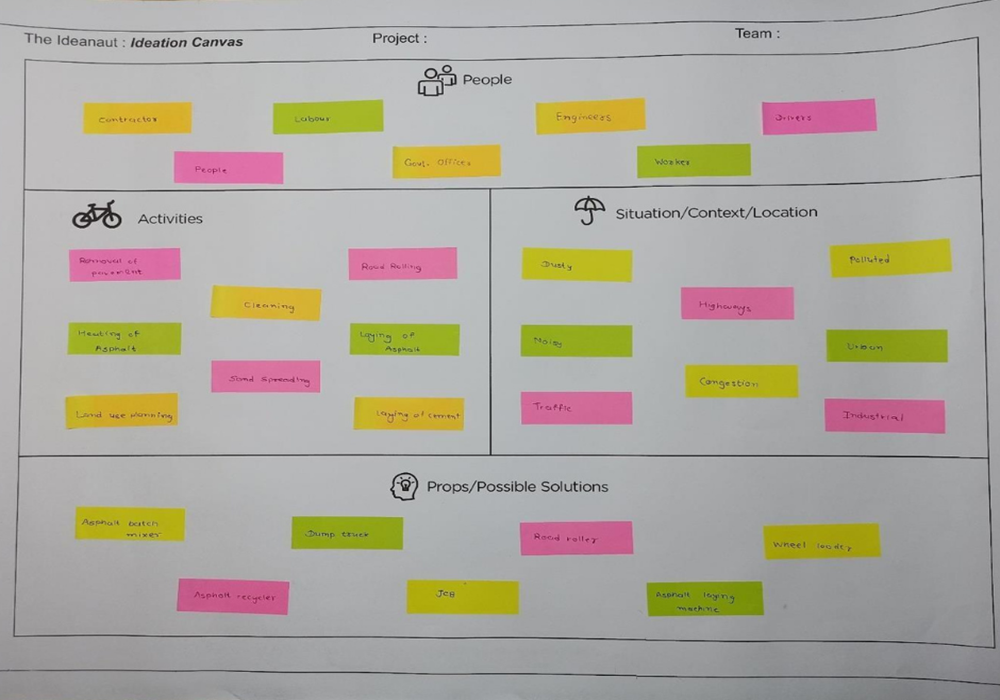 The Ideanaut : Ideation Canvas
Project :
Team :
People
Contractor
Labour
Engineers
Drivers
People
Govt. Offices
Worker
Activities
Removal of
pavement
Road Rolling
Cleaning
Heating of
Asphalt
Laying of
Asphalt
Sand Spreading
Land use planning
Laying of cement
Situation/Context/Location
Dusty
Polluted
Highways
Noisy
Urban
Congestion
Traffic
Industrial
Props/Possible Solutions
Asphalt batch
mixer
Dump truck
Road roller
Wheel loader
Asphalt recycler
JCB
Asphalt laying
machine